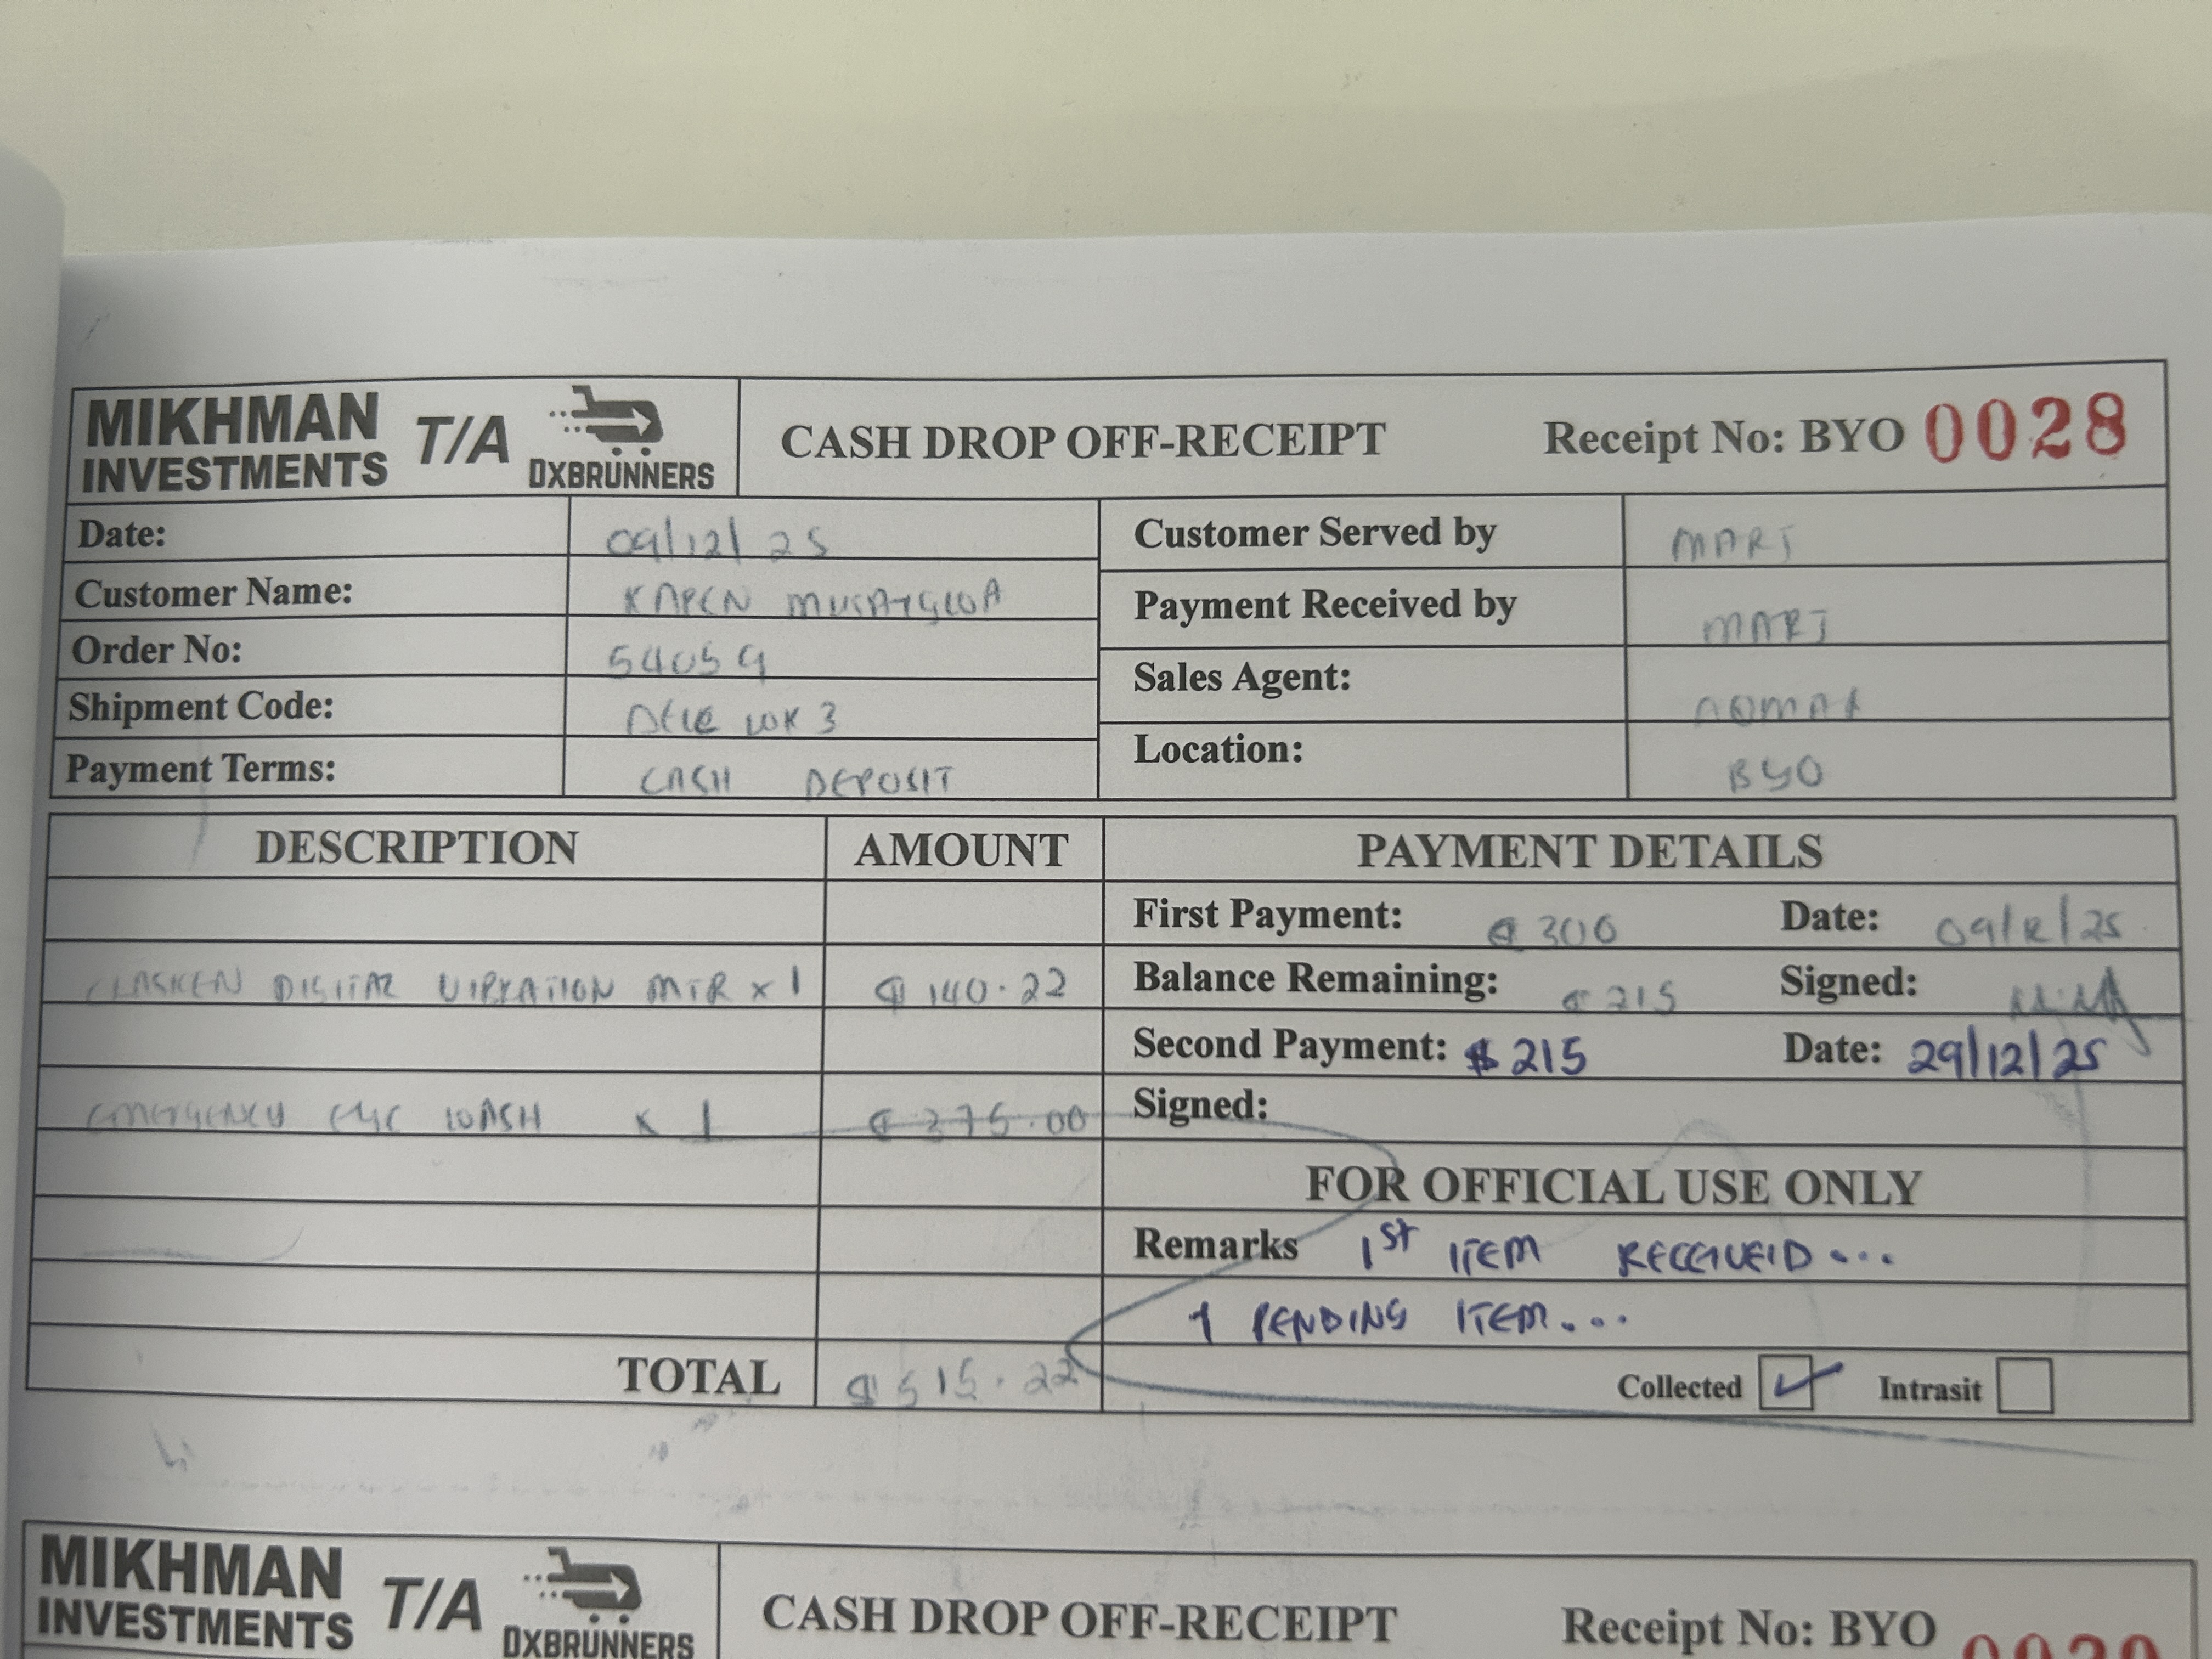 MIKHMAN INVESTMENTS T/A DXBRUNNERS CASH DROP OFF-RECEIPT Receipt No: BYO 0028
Date: 09/12/25 Customer Served by
Customer Name: Payment Received by
Order No: 54059 Sales Agent:
Shipment Code: WK 3
Payment Terms: CASH DEPOSIT Location: BYO
DESCRIPTION AMOUNT PAYMENT DETAILS
First Payment: $300 Date: 09/12/25
DIGITAL MTR x 1 $140.22 Balance Remaining: $215 Signed:
Second Payment: $215 Date: 29/12/25
EMERGENCY EYE WASH x 1 $375.00 Signed:
FOR OFFICIAL USE ONLY
Remarks 1st ITEM RECEIVEID...
1 PENDING ITEM...
TOTAL $515.22 Collected Intrasit
MIKHMAN INVESTMENTS T/A DXBRUNNERS CASH DROP OFF-RECEIPT Receipt No: BYO